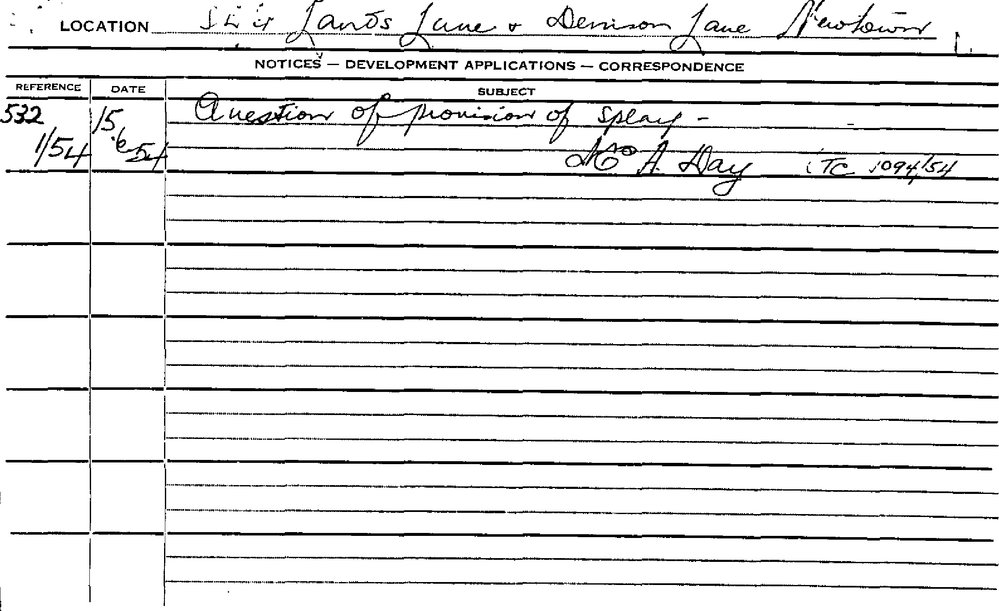 LOCATION Lane & Denison Lane Newtown
NOTICES — DEVELOPMENT APPLICATIONS — CORRESPONDENCE
REFERENCE DATE SUBJECT
532 15 Question of provision of splay -
1/54 .6.54 A. Day TC 1094/54